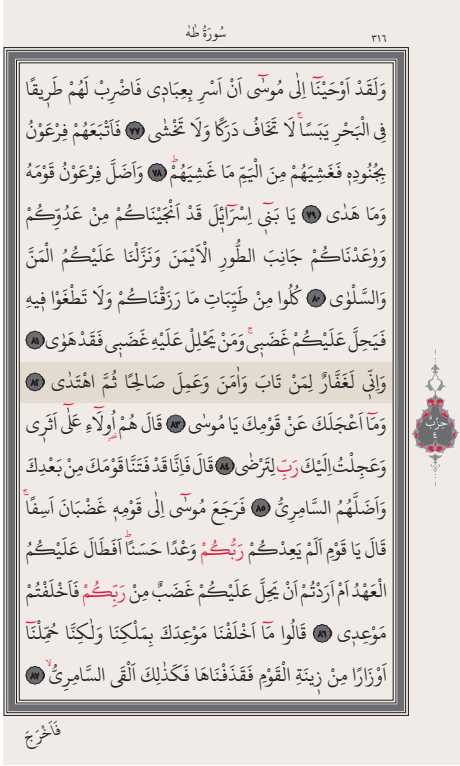 سُورَةُ طٰهٰ
٣١٦
وَلَقَدْ اَوْحَيْنَٓا اِلٰى مُوسٰٓى اَنْ اَسْرِ بِعِبَاد۪ى فَاضْرِبْ لَهُمْ طَر۪يقًا
فِى الْبَحْرِ يَبَسًاۙ لَا تَخَافُ دَرَكًا وَلَا تَخْشٰى ٧٧ فَاَتْبَعَهُمْ فِرْعَوْنُ
بِجُنُودِه۪ فَغَشِيَهُمْ مِنَ الْيَمِّ مَا غَشِيَهُمْۜ ٧٨ وَاَضَلَّ فِرْعَوْنُ قَوْمَهُ
وَمَا هَدٰى ٧٩ يَا بَن۪ٓى اِسْرَٓائ۪لَ قَدْ اَنْجَيْنَاكُمْ مِنْ عَدُوِّكُمْ
وَوٰعَدْنَاكُمْ جَانِبَ الطُّورِ الْاَيْمَنَ وَنَزَّلْنَا عَلَيْكُمُ الْمَنَّ
وَالسَّلْوٰى ٨٠ كُلُوا مِنْ طَيِّبَاتِ مَا رَزَقْنَاكُمْ وَلَا تَطْغَوْا ف۪يهِ
فَيَحِلَّ عَلَيْكُمْ غَضَب۪ىۚ وَمَنْ يَحْلِلْ عَلَيْهِ غَضَب۪ى فَقَدْ هَوٰى ٨١
وَاِنّ۪ى لَغَفَّارٌ لِمَنْ تَابَ وَاٰمَنَ وَعَمِلَ صَالِحًا ثُمَّ اهْتَدٰى ٨٢
وَمَٓا اَعْجَلَكَ عَنْ قَوْمِكَ يَا مُوسٰى ٨٣ قَالَ هُمْ اُو۬لَٓاءِ عَلٰٓى اَثَر۪ى
وَعَجِلْتُ اِلَيْكَ رَبِّ لِتَرْضٰى ٨٤ قَالَ فَاِنَّا قَدْ فَتَنَّا قَوْمَكَ مِنْ بَعْدِكَ
وَاَضَلَّهُمُ السَّامِرِىُّ ٨٥ فَرَجَعَ مُوسٰٓى اِلٰى قَوْمِه۪ غَضْبَانَ اَسِفًاۚ
قَالَ يَا قَوْمِ اَلَمْ يَعِدْكُمْ رَبُّكُمْ وَعْدًا حَسَنًاۜ اَفَطَالَ عَلَيْكُمُ
الْعَهْدُ اَمْ اَرَدْتُمْ اَنْ يَحِلَّ عَلَيْكُمْ غَضَبٌ مِنْ رَبِّكُمْ فَاَخْلَفْتُمْ
مَوْعِد۪ى ٨٦ قَالُوا مَٓا اَخْلَفْنَا مَوْعِدَكَ بِمَلْكِنَا وَلٰكِنَّا حُمِّلْنَٓا
اَوْزَارًا مِنْ ز۪ينَةِ الْقَوْمِ فَقَذَفْنَاهَا فَكَذٰلِكَ اَلْقَى السَّامِرِىُّۙ ٨٧
حِزْب
٤
فَاَخْرَجَ